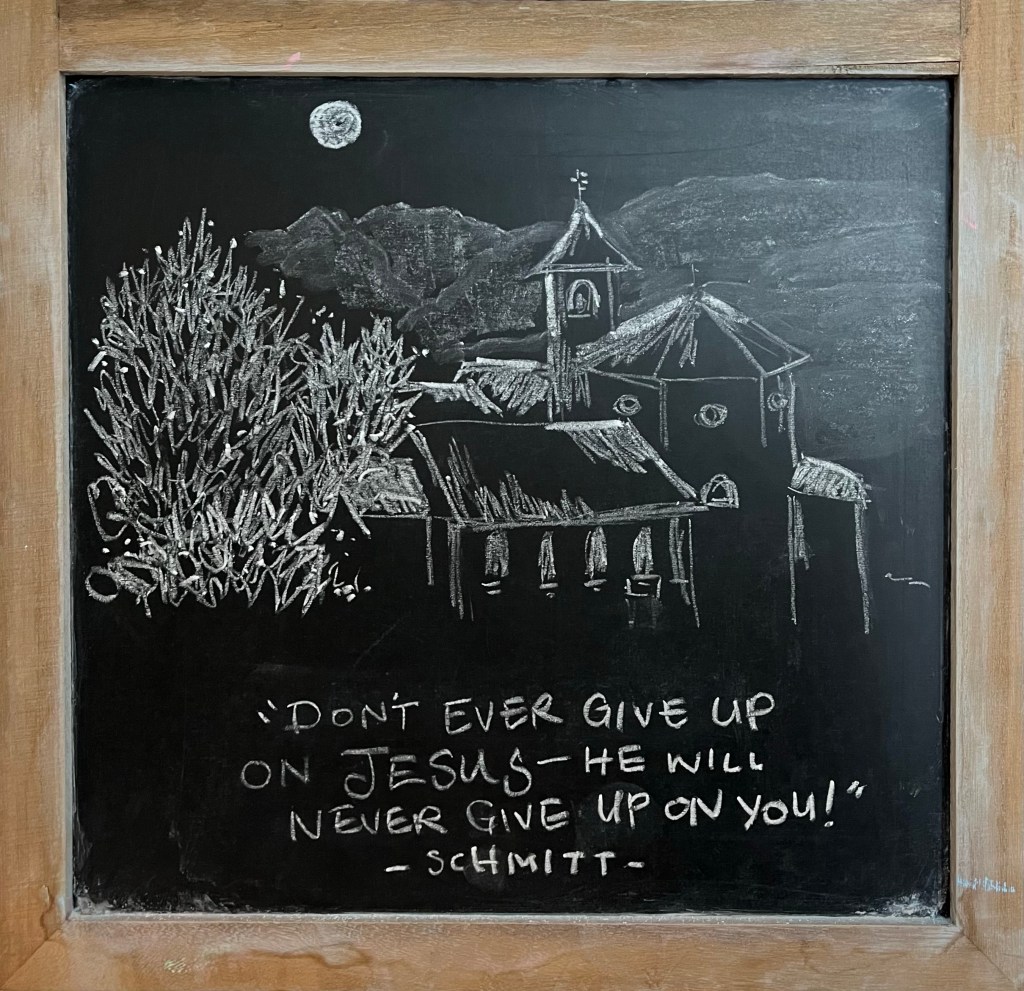 "DON'T EVER GIVE UP
ON JESUS – HE WILL
NEVER GIVE UP ON YOU!"
- SCHMITT -